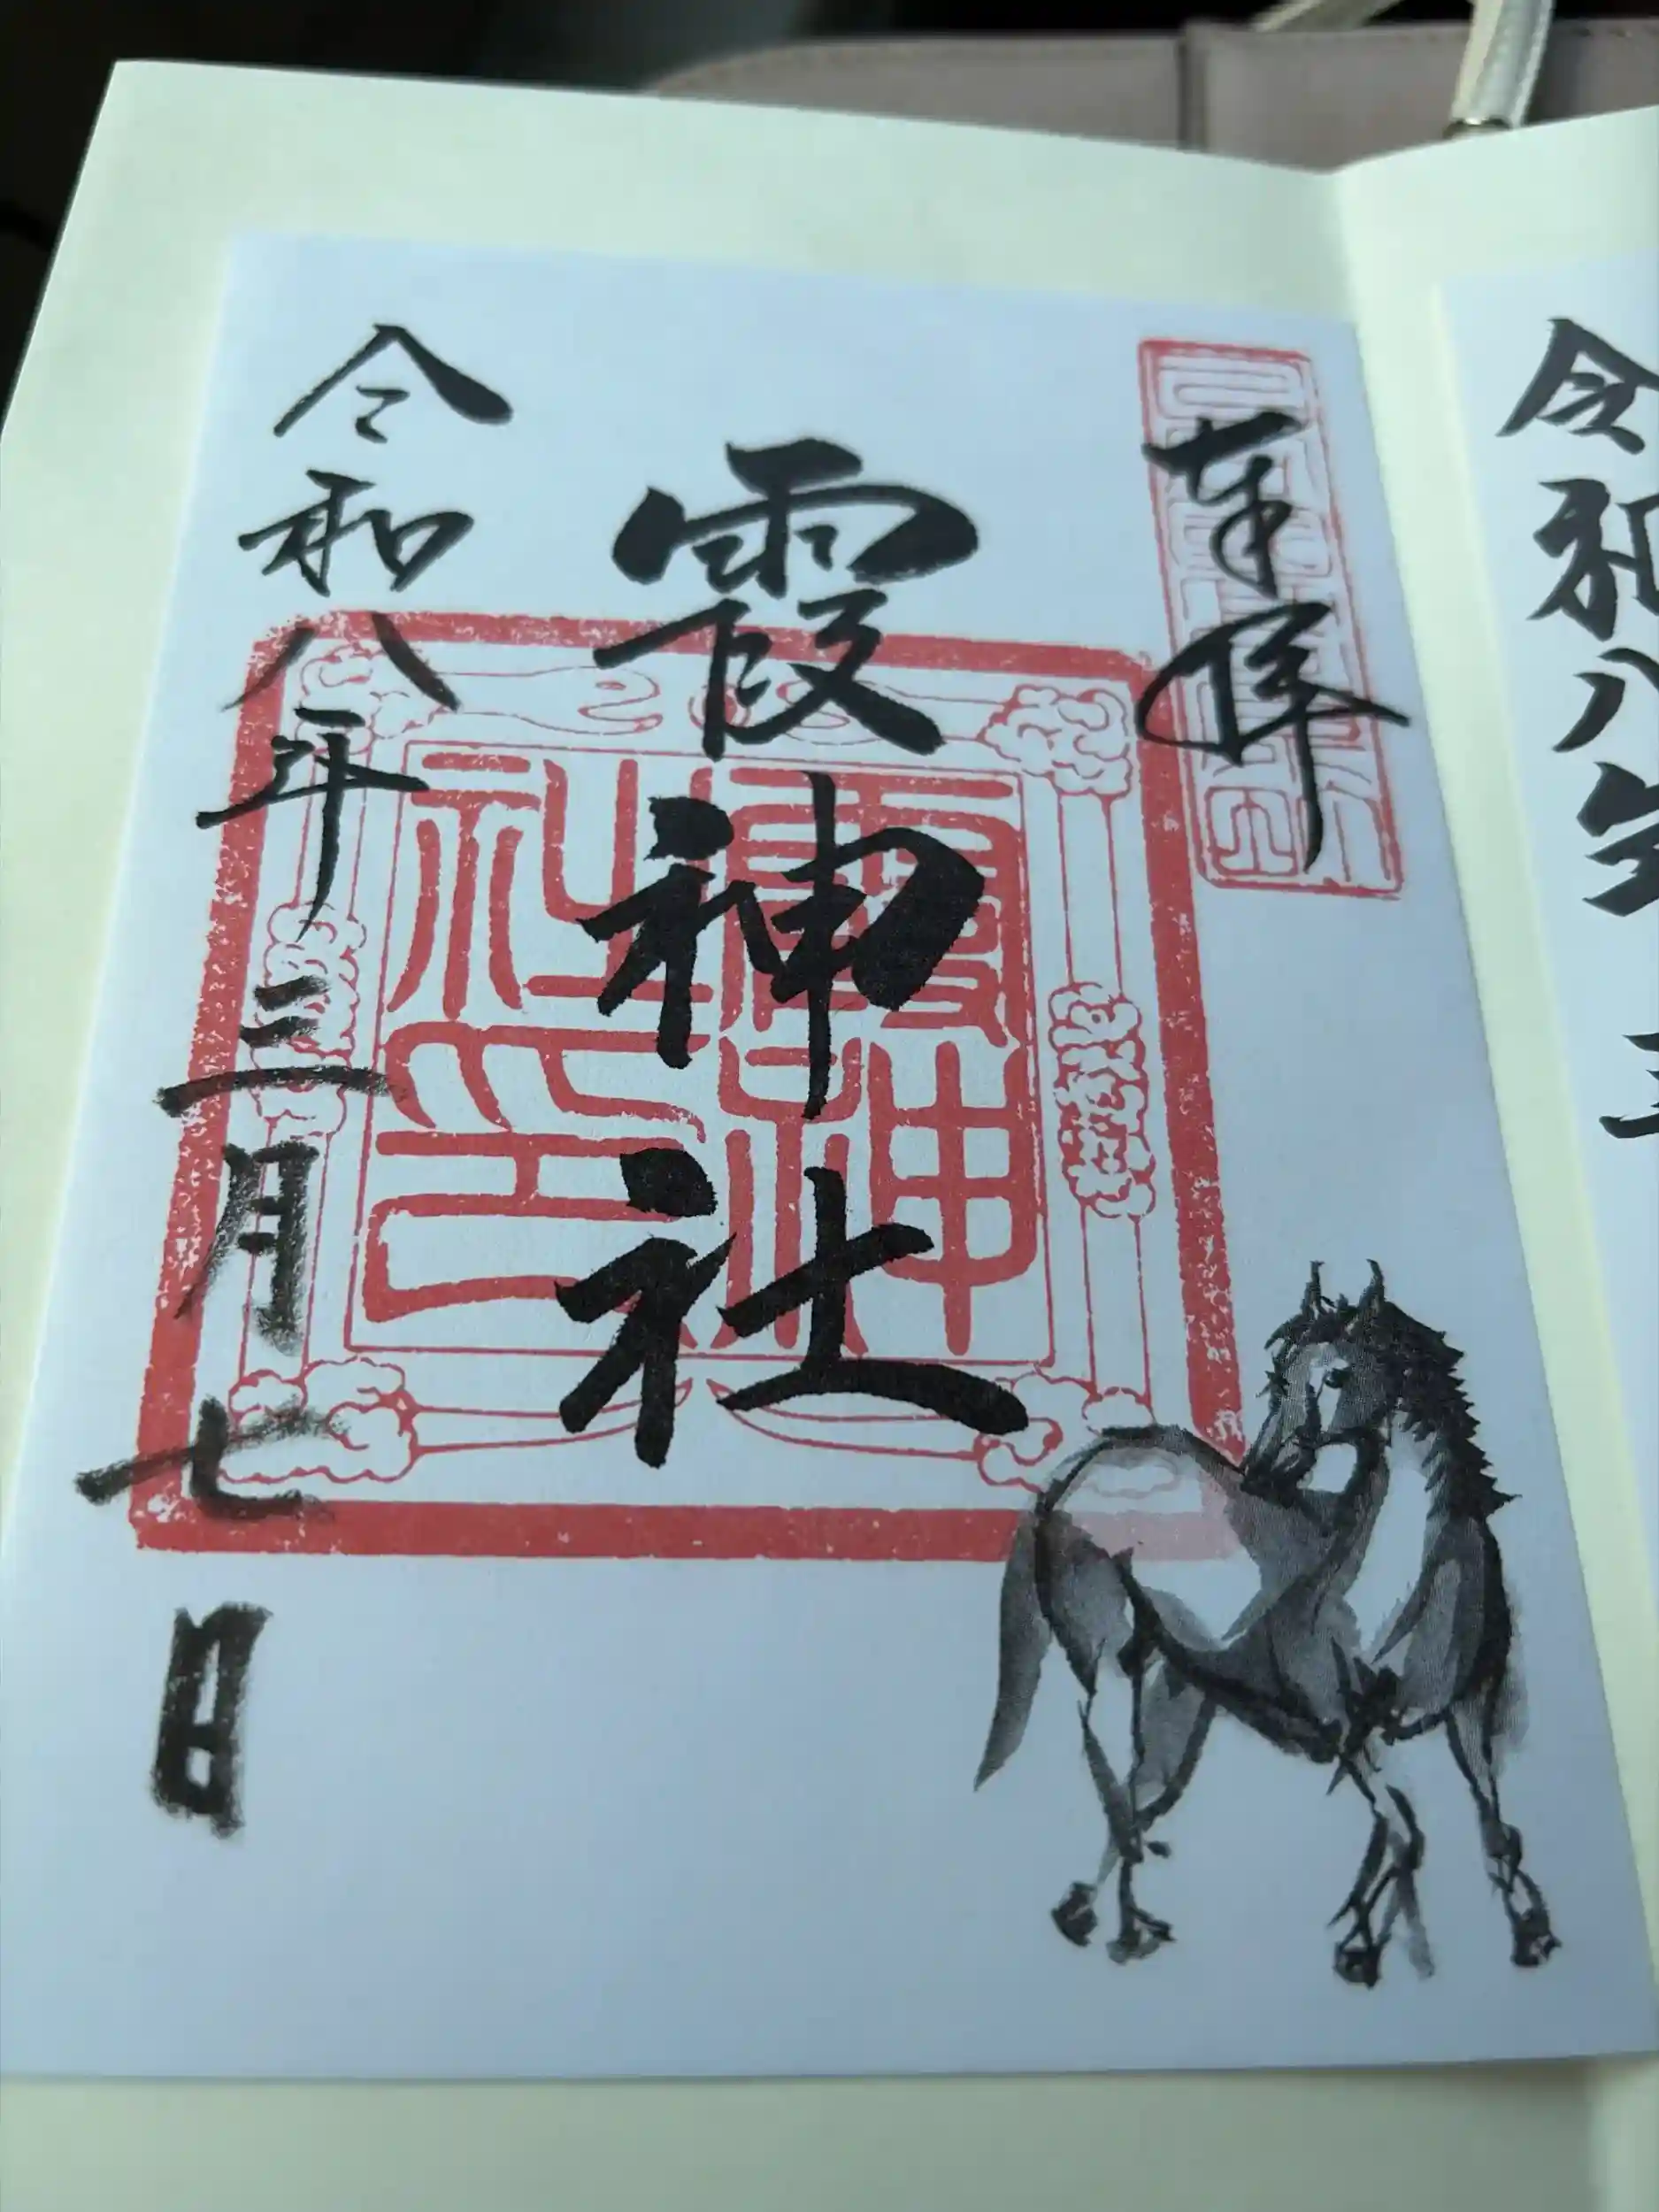 令和八年三
奉拝
霞神社
令和八年三月七日
霞神
社印